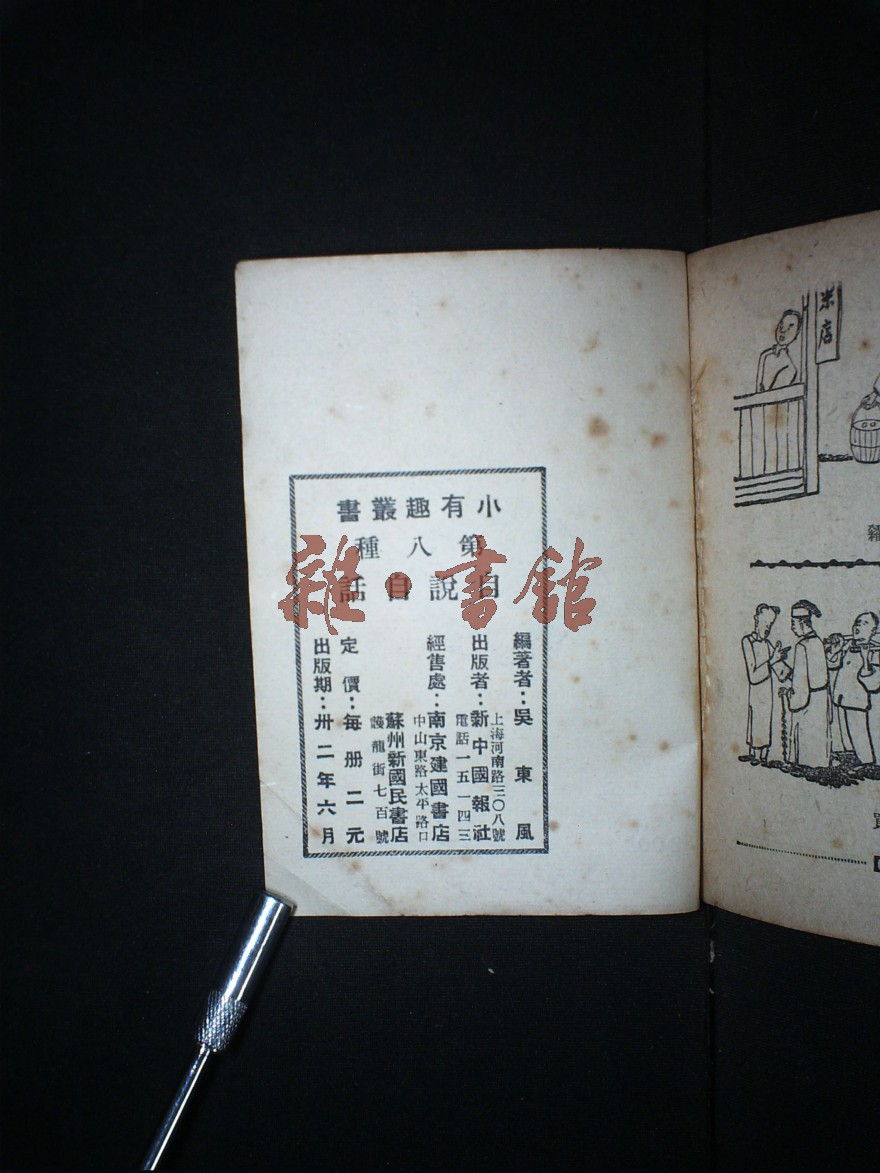 小有趣叢書
第八種
自說自話
編著者：吳東風
上海河南路三〇八號
出版者：新中國報社
電話一五一四三
經售處：南京建國書店
中山東路太平路口
蘇州新國民書店
護龍街七百號
定價：每册二元
出版期：卅二年六月
雜·書館
米店